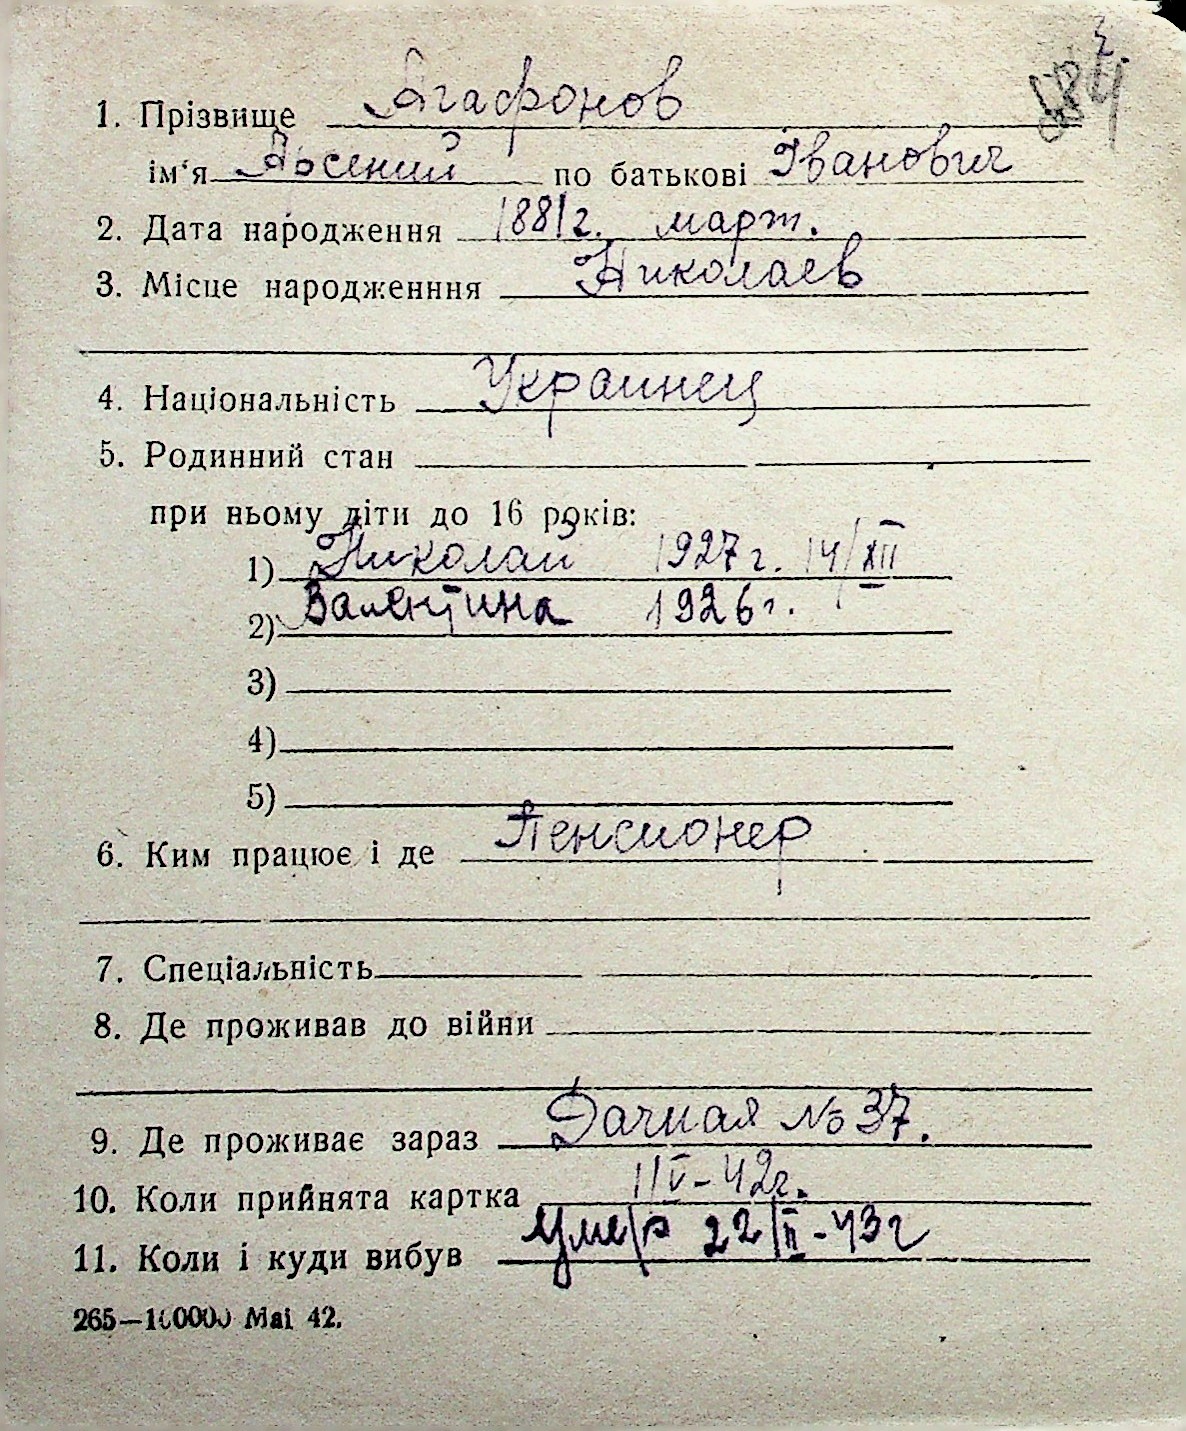 1. Прізвище Агафонов
ім'я Арсений по батькові Іванович
2. Дата народження 1881г. март.
3. Місце народженння Николаев
4. Національність Украинец
5. Родинний стан
при ньому діти до 16 років:
1) Николай 1927г. 14/XII
2) Валентина 1926г.
3)
4)
5)
6. Ким працює і де Пенсионер
7. Спеціальність
8. Де проживав до війни
9. Де проживає зараз Дачная № 37.
10. Коли прийнята картка 1/IV-42г.
11. Коли і куди вибув умер 22/II-43г
265—100000 Mai 42.